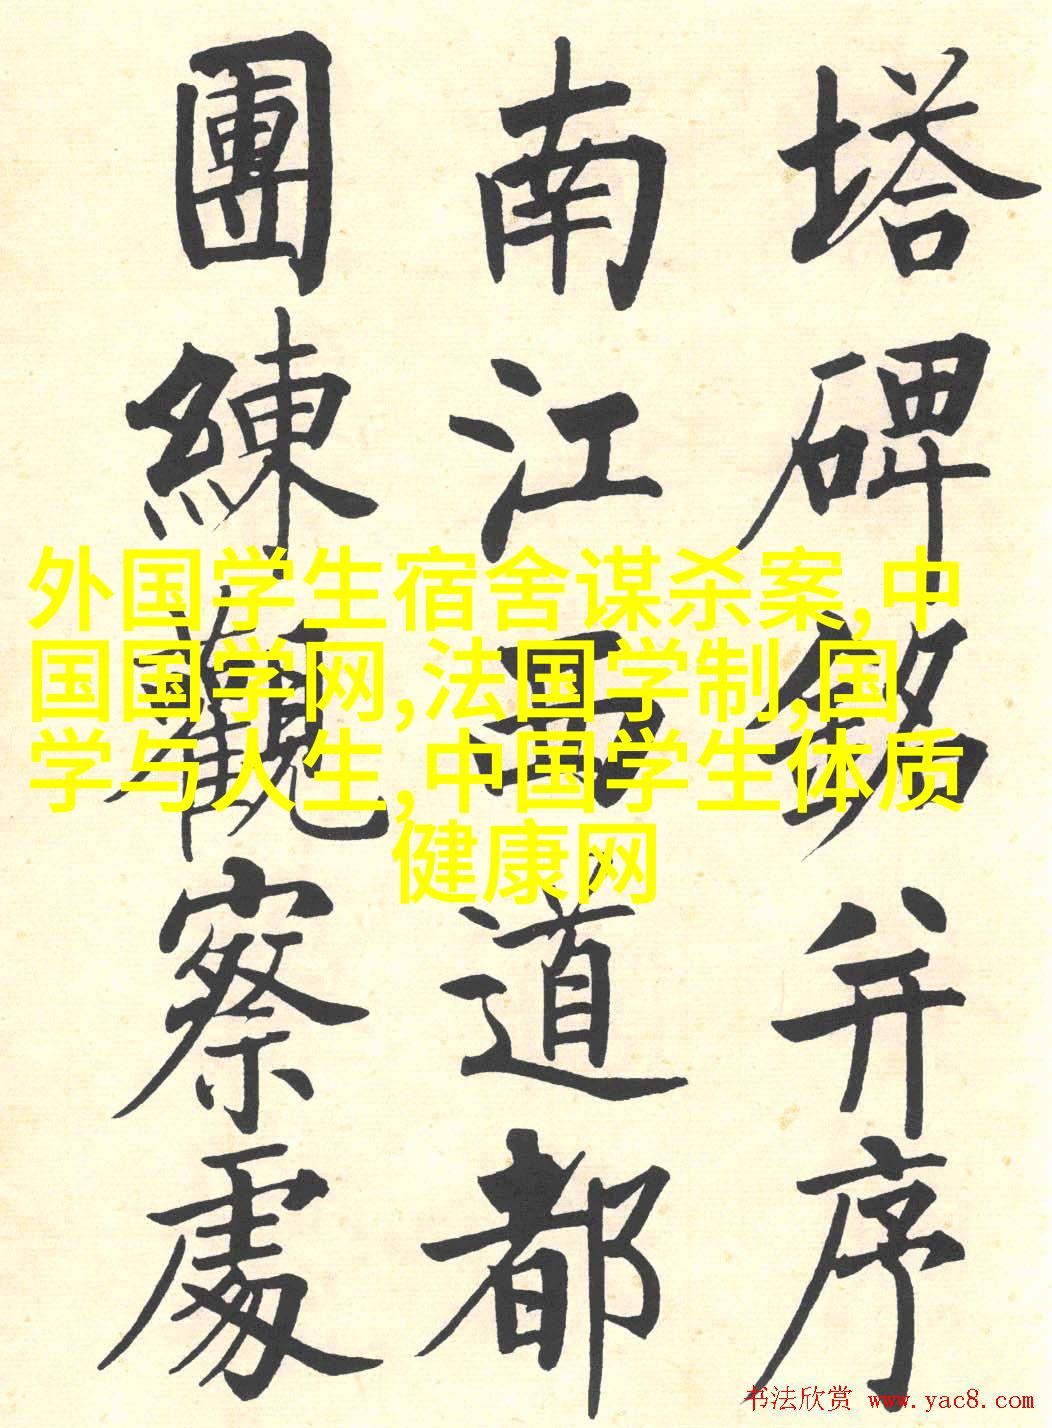 塔碑銘并序
南江西道都
團練觀察處
外国学生宿舍谋杀案,中
国国学网,法国学制,国
学与人生,中国学生体质
健康网
书法欣赏 www.yac8.com